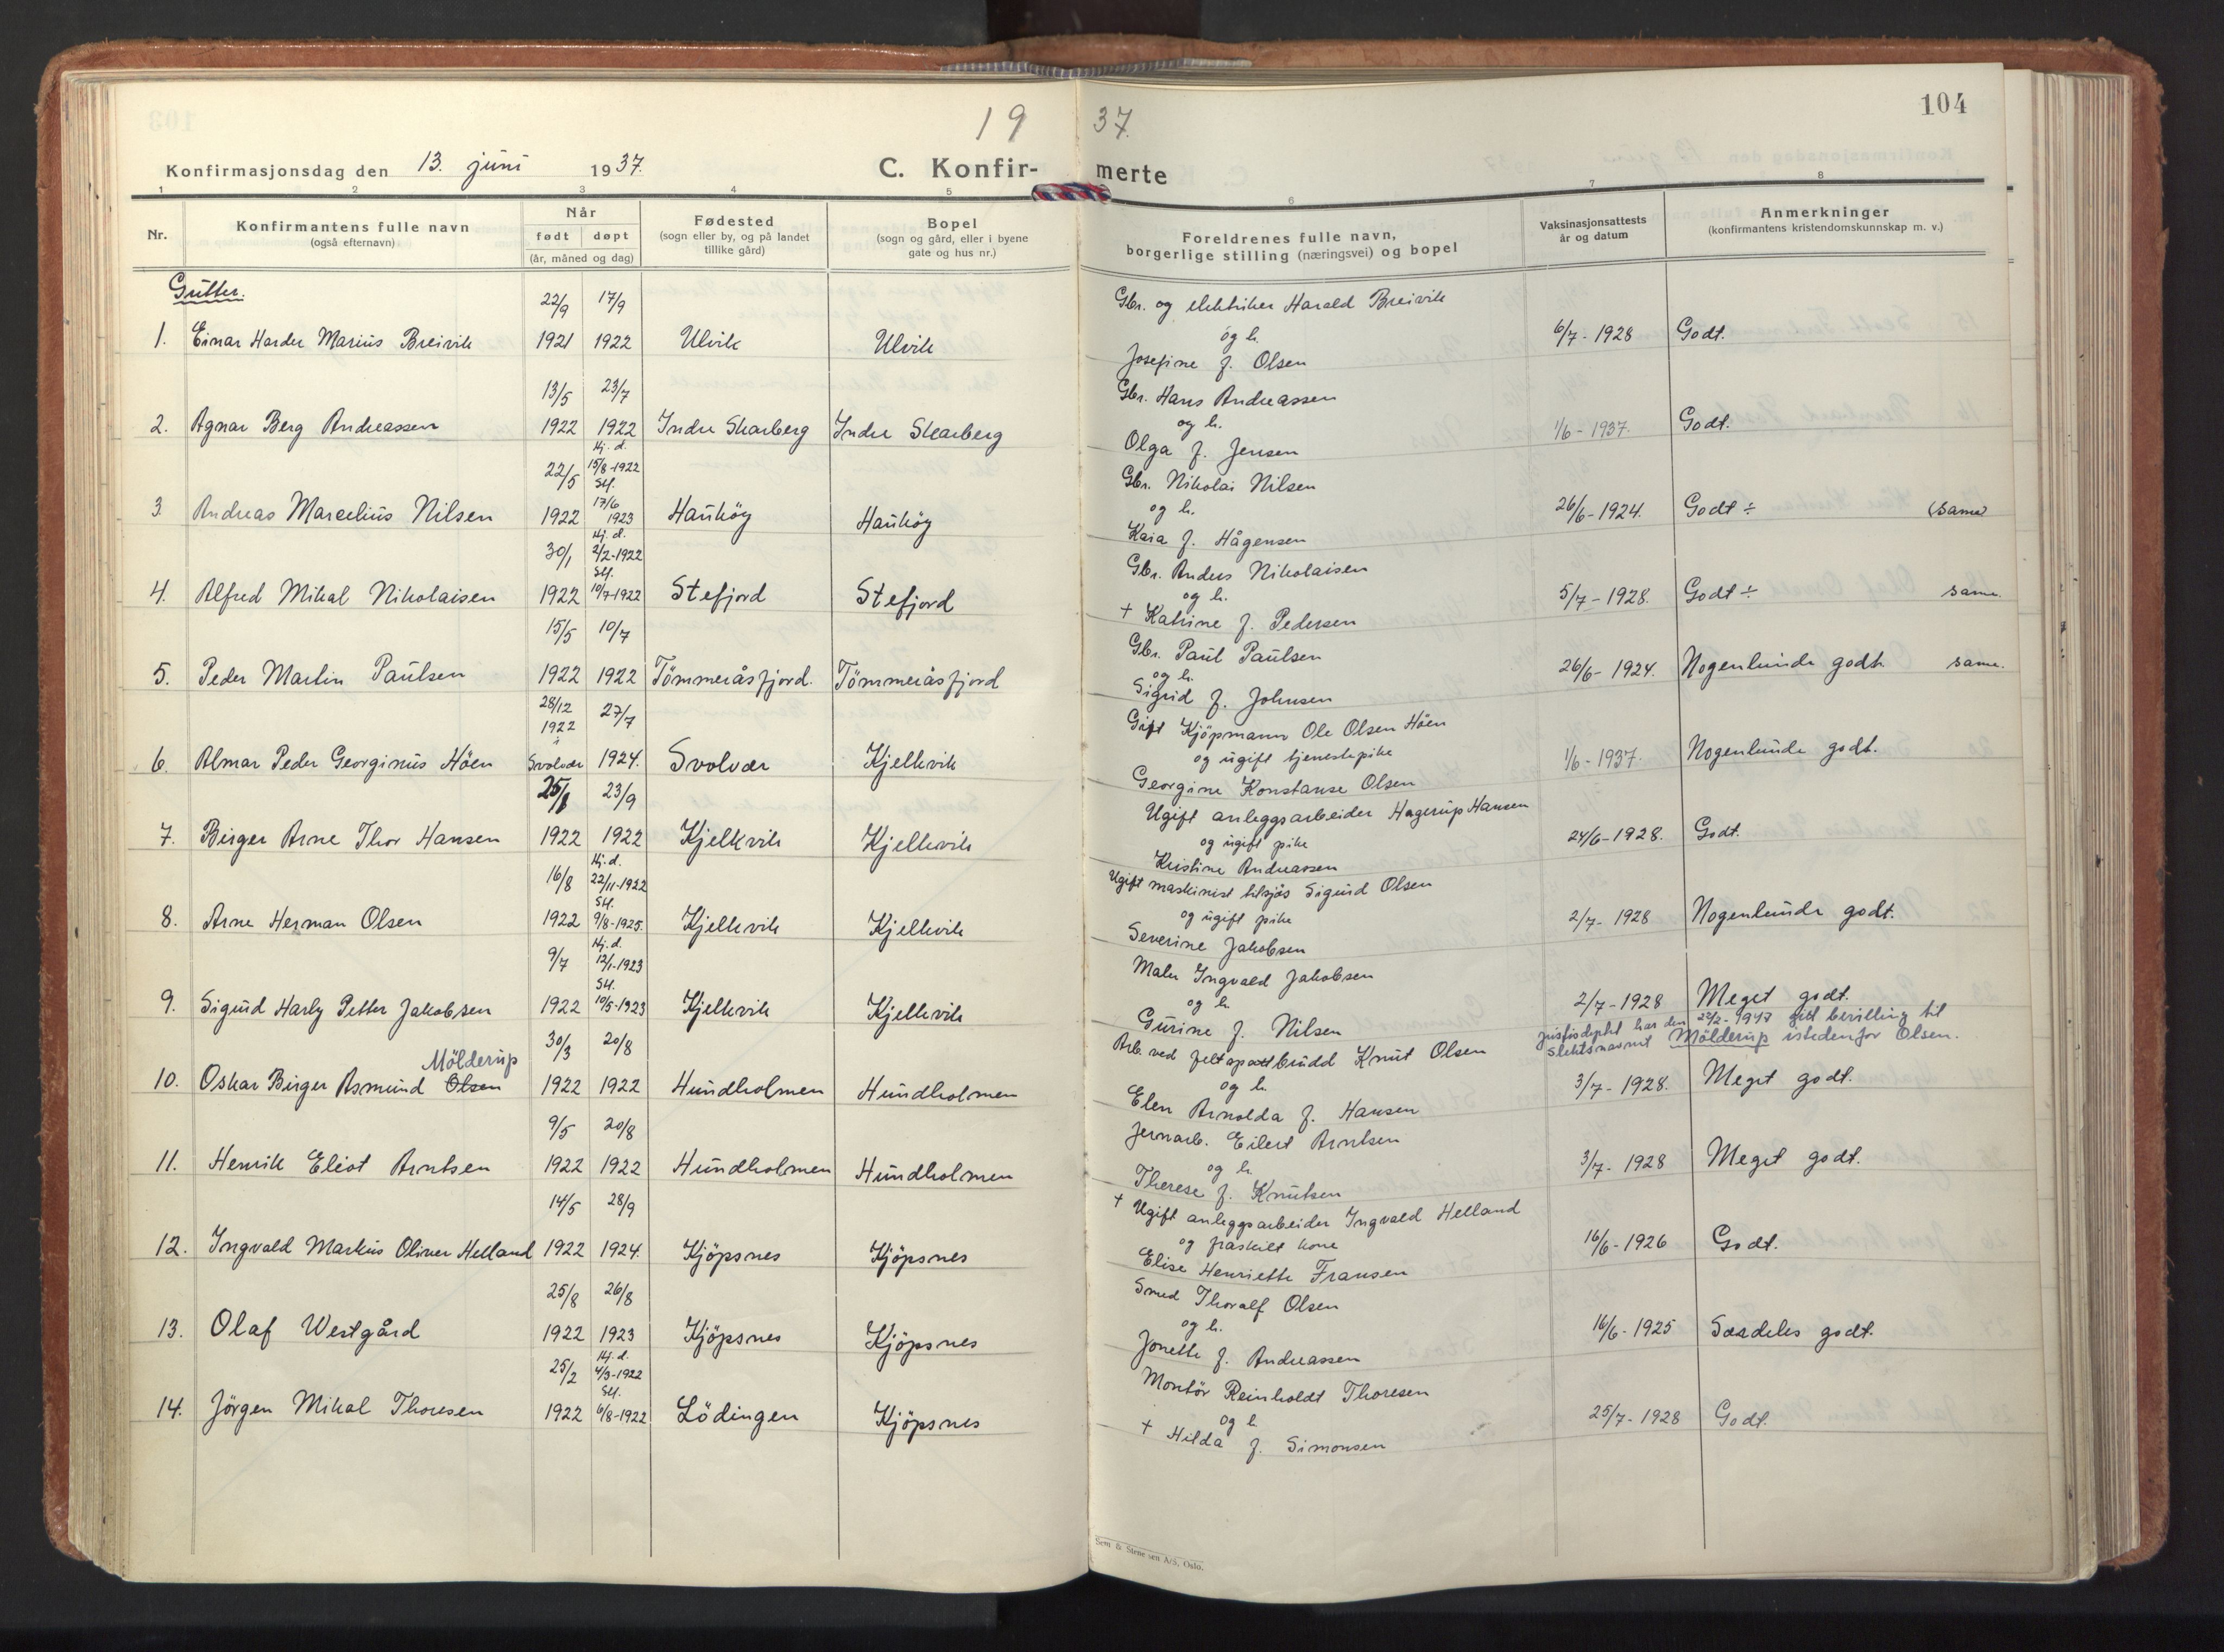 19 37.
104
Konfirmasjonsdag den 13. juni 1937.
C. Konfirmerte
1 2 3 4 5 6 7 8
Nr.
Konfirmantens fulle navn
(også efternavn)
Når
født døpt
(år, måned og dag)
Fødested
(sogn eller by, og på landet
tillike gård)
Bopel
(sogn og gård, eller i byene
gate og hus nr.)
Foreldrenes fulle navn,
borgerlige stilling (næringsvei) og bopel
Vaksinasjonsattests
år og datum
Anmerkninger
(konfirmantens kristendomskunnskap m. v.)
Gutter.
22/9 17/9 Gbr. og elektriker Harald Breivik
1. Einar Harder Marius Breivik 1921 1922 Ulvik Ulvik og h. 6/7-1928 Godt.
Josefine f. Olsen
13/5 23/7 Gbr. Hans Andreassen
2. Agnar Berg Andreassen 1922 1922 Indre Skarberg Indre Skarberg og h. 1/6-1937. Godt.
Olga f. Jensen
Hj. d.
22/5 15/8-1922 Gbr. Nikolai Nilsen
Stf.
3. Andreas Marcelius Nilsen 1922 17/6 1923 Haukøy Haukøy og h. 26/6-1924. Godt ÷ (same)
Kaia f. Hågensen
Hj. d.
30/1 2/2-1922 Gbr. Anders Nikolaisen
Stf.
4. Alfred Mikal Nikolaisen 1922 10/7-1922 Stefjord Stefjord og h. 5/7-1928. Godt ÷ same.
+ Katrine f. Pedersen
15/5 10/7 Gbr. Paul Paulsen
5. Peder Martin Paulsen 1922 1922 Tömmeråsfjord. Tömmeråsfjord og h. 26/6-1924. Nogenlunde godt. same.
Sigrid f. Johnsen
28/12 1922 27/7 Gift Kjöpmann Ole Olsen Höen
i
6. Almar Peder Georginus Höen Svolvær 1924. Svolvær Kjelkvik og ugift tjenestepike 1/6-1937. Nogenlunde godt.
Georgine Konstanse Olsen
25/8 23/9 Ugift anleggsarbeider Hagerup Hansen
7. Birger Arne Thor Hansen 1922 1922 Kjelkvik Kjelkvik og ugift pike 24/6-1928. Godt.
Kristine Andreassen
Hj. d.
16/8 22/11-1922 Ugift maskinist tilsjös Sigurd Olsen
Stf.
8. Arne Herman Olsen 1922 9/8-1925. Kjelkvik Kjelkvik og ugift pike 2/7-1928 Nogenlunde godt.
Severine Jakobsen
Hj. d.
9/7 12/1-1923 Maler Ingvald Jakobsen
Stf.
9. Sigurd Harly Petter Jakobsen 1922 10/5-1923 Kjelkvik Kjelkvik og h. 2/7-1928 Meget godt.
Gurine f. Nilsen
Justisdeptet har den 22/2-1947 gitt bevilling til
slektsnavnet Mölderup istedenfor Olsen.
Mölderup
30/3 20/8 Arb. ved feltspatbrudd Knut Olsen
10. Oskar Birger Asmund Olsen 1922 1922 Hundholmen Hundholmen og h. 3/7-1928. Meget godt.
Elen Arnolda f. Hansen
9/5 20/8 Jernarb. Eilert Arntsen
11. Henrik Eliot Arntsen 1922 1922 Hundholmen Hundholmen og h. 3/7-1928 Meget godt.
Therese f. Knutsen
14/5 28/9 + Ugift anleggsarbeider Ingvald Helland
12. Ingvald Markus Oliver Helland 1922 1924. Kjöpsnes Kjöpsnes og fraskilt kone 16/6-1926 Godt.
Elise Henriette Fransen
25/8 26/8 Smed Thoralf Olsen
13. Olaf Westgård 1922 1923 Kjöpsnes Kjöpsnes og h. 16/6-1925 Særdeles godt.
Jonette f. Andreassen
Hj. d.
25/2 4/3-1922 Montör Reinholdt Thoresen
Stf.
14. Jörgen Mikal Thoresen 1922 6/8-1922 Lödingen Kjöpsnes og h. 25/7-1928 Godt.
+ Hilda f. Simonsen
Sem & Stenersen A/S, Oslo.